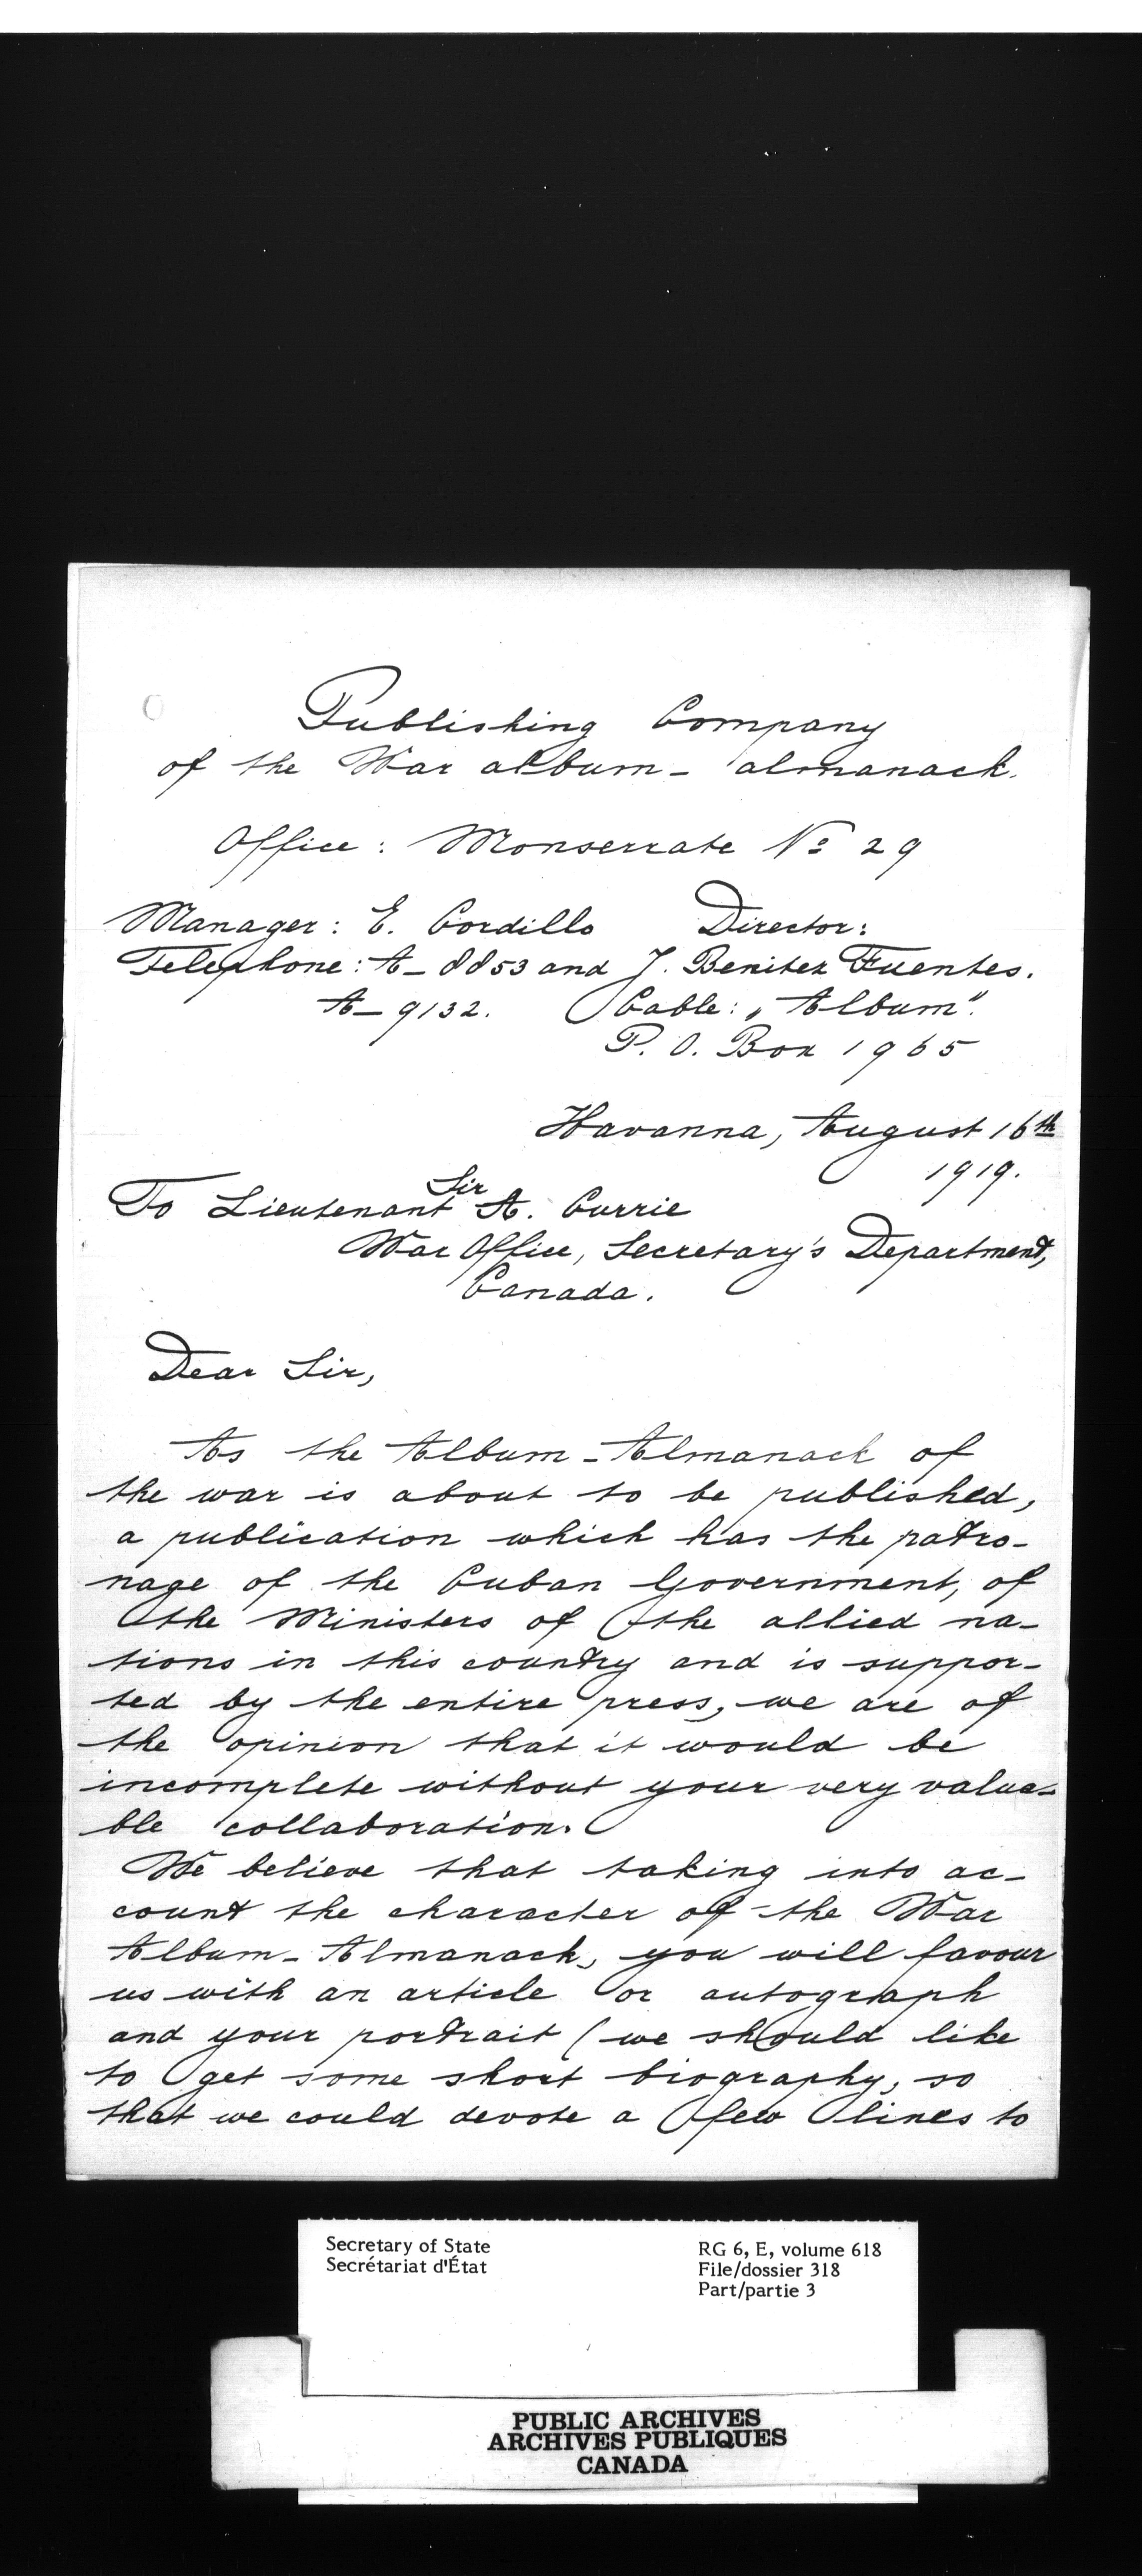 Publishing Company
of the War album - almanack.
Office: Monserrate No 29
Manager: E. Cordillo Director:
Telephone: A- 8853 and J. Benitez Fuentes.
A- 9132. Cable: „Album".
P. O. Box 1965
Havanna, August 16th
1919.
Sir
To Lieutenant A. Currie
War Office, Secretary's Department,
Canada.
Dear Sir,
As the Album - Almanack of
the war is about to be published,
a publication which has the patro-
nage of the Cuban Government, of
the Ministers of the allied na-
tions in this country and is suppor-
ted by the entire press, we are of
the opinion that it would be
incomplete without your very valua-
ble collaboration.
We believe that taking into ac-
count the character of the War
Album - Almanack, you will favour
us with an article or autograph
and your portrait (we should like
to get some short biography, so
that we could devote a few lines to
Secretary of State
Secrétariat d'État
RG 6, E, volume 618
File/dossier 318
Part/partie 3
PUBLIC ARCHIVES
ARCHIVES PUBLIQUES
CANADA